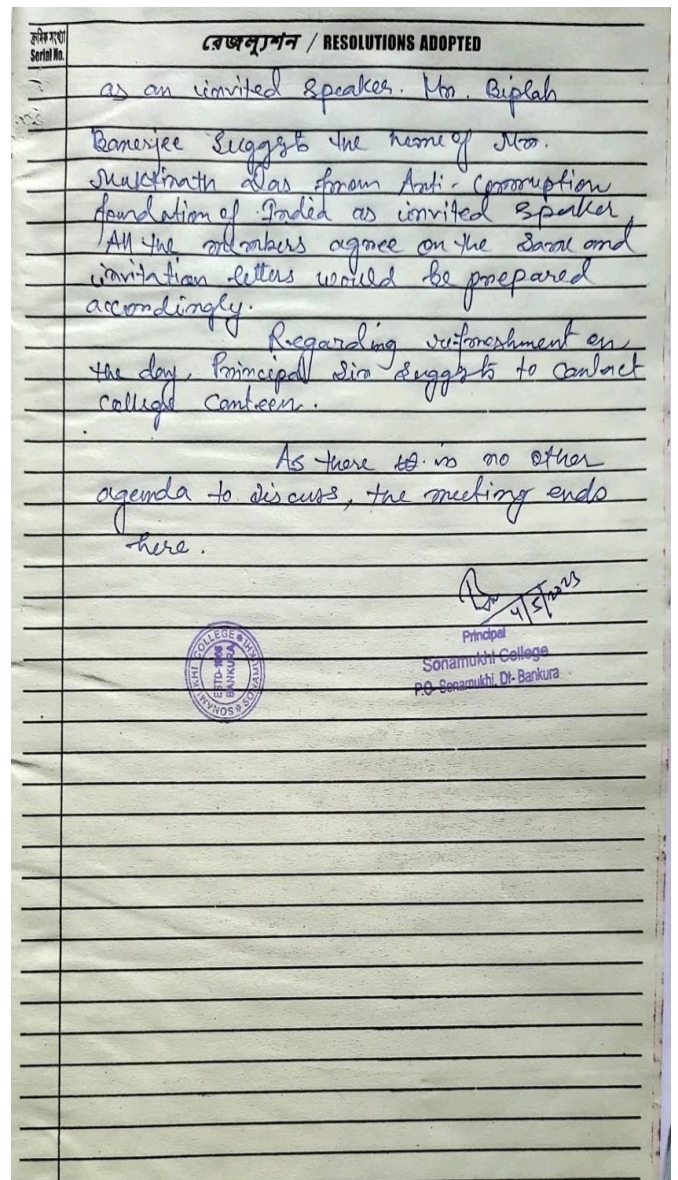 ক্রমিক সংখ্যা
Serial No.
রেজল্যুশন / RESOLUTIONS ADOPTED
as an invited speaker. Mr. Biplab
Banerjee suggests the name of Mr.
Muktinath Das from Anti-Corruption
foundation of India as invited speaker,
All the members agree on the same and
invitation letters would be prepared
accordingly.
Regarding refreshment on
the day, Principal Sir suggests to contact
college canteen.
As there is no other
agenda to discuss, the meeting ends
here.
4/5/2023
Principal
Sonamukhi College
P.O- Sonamukhi, Dt- Bankura
SONAMUKHI COLLEGE
ESTD-1966
BANKURA